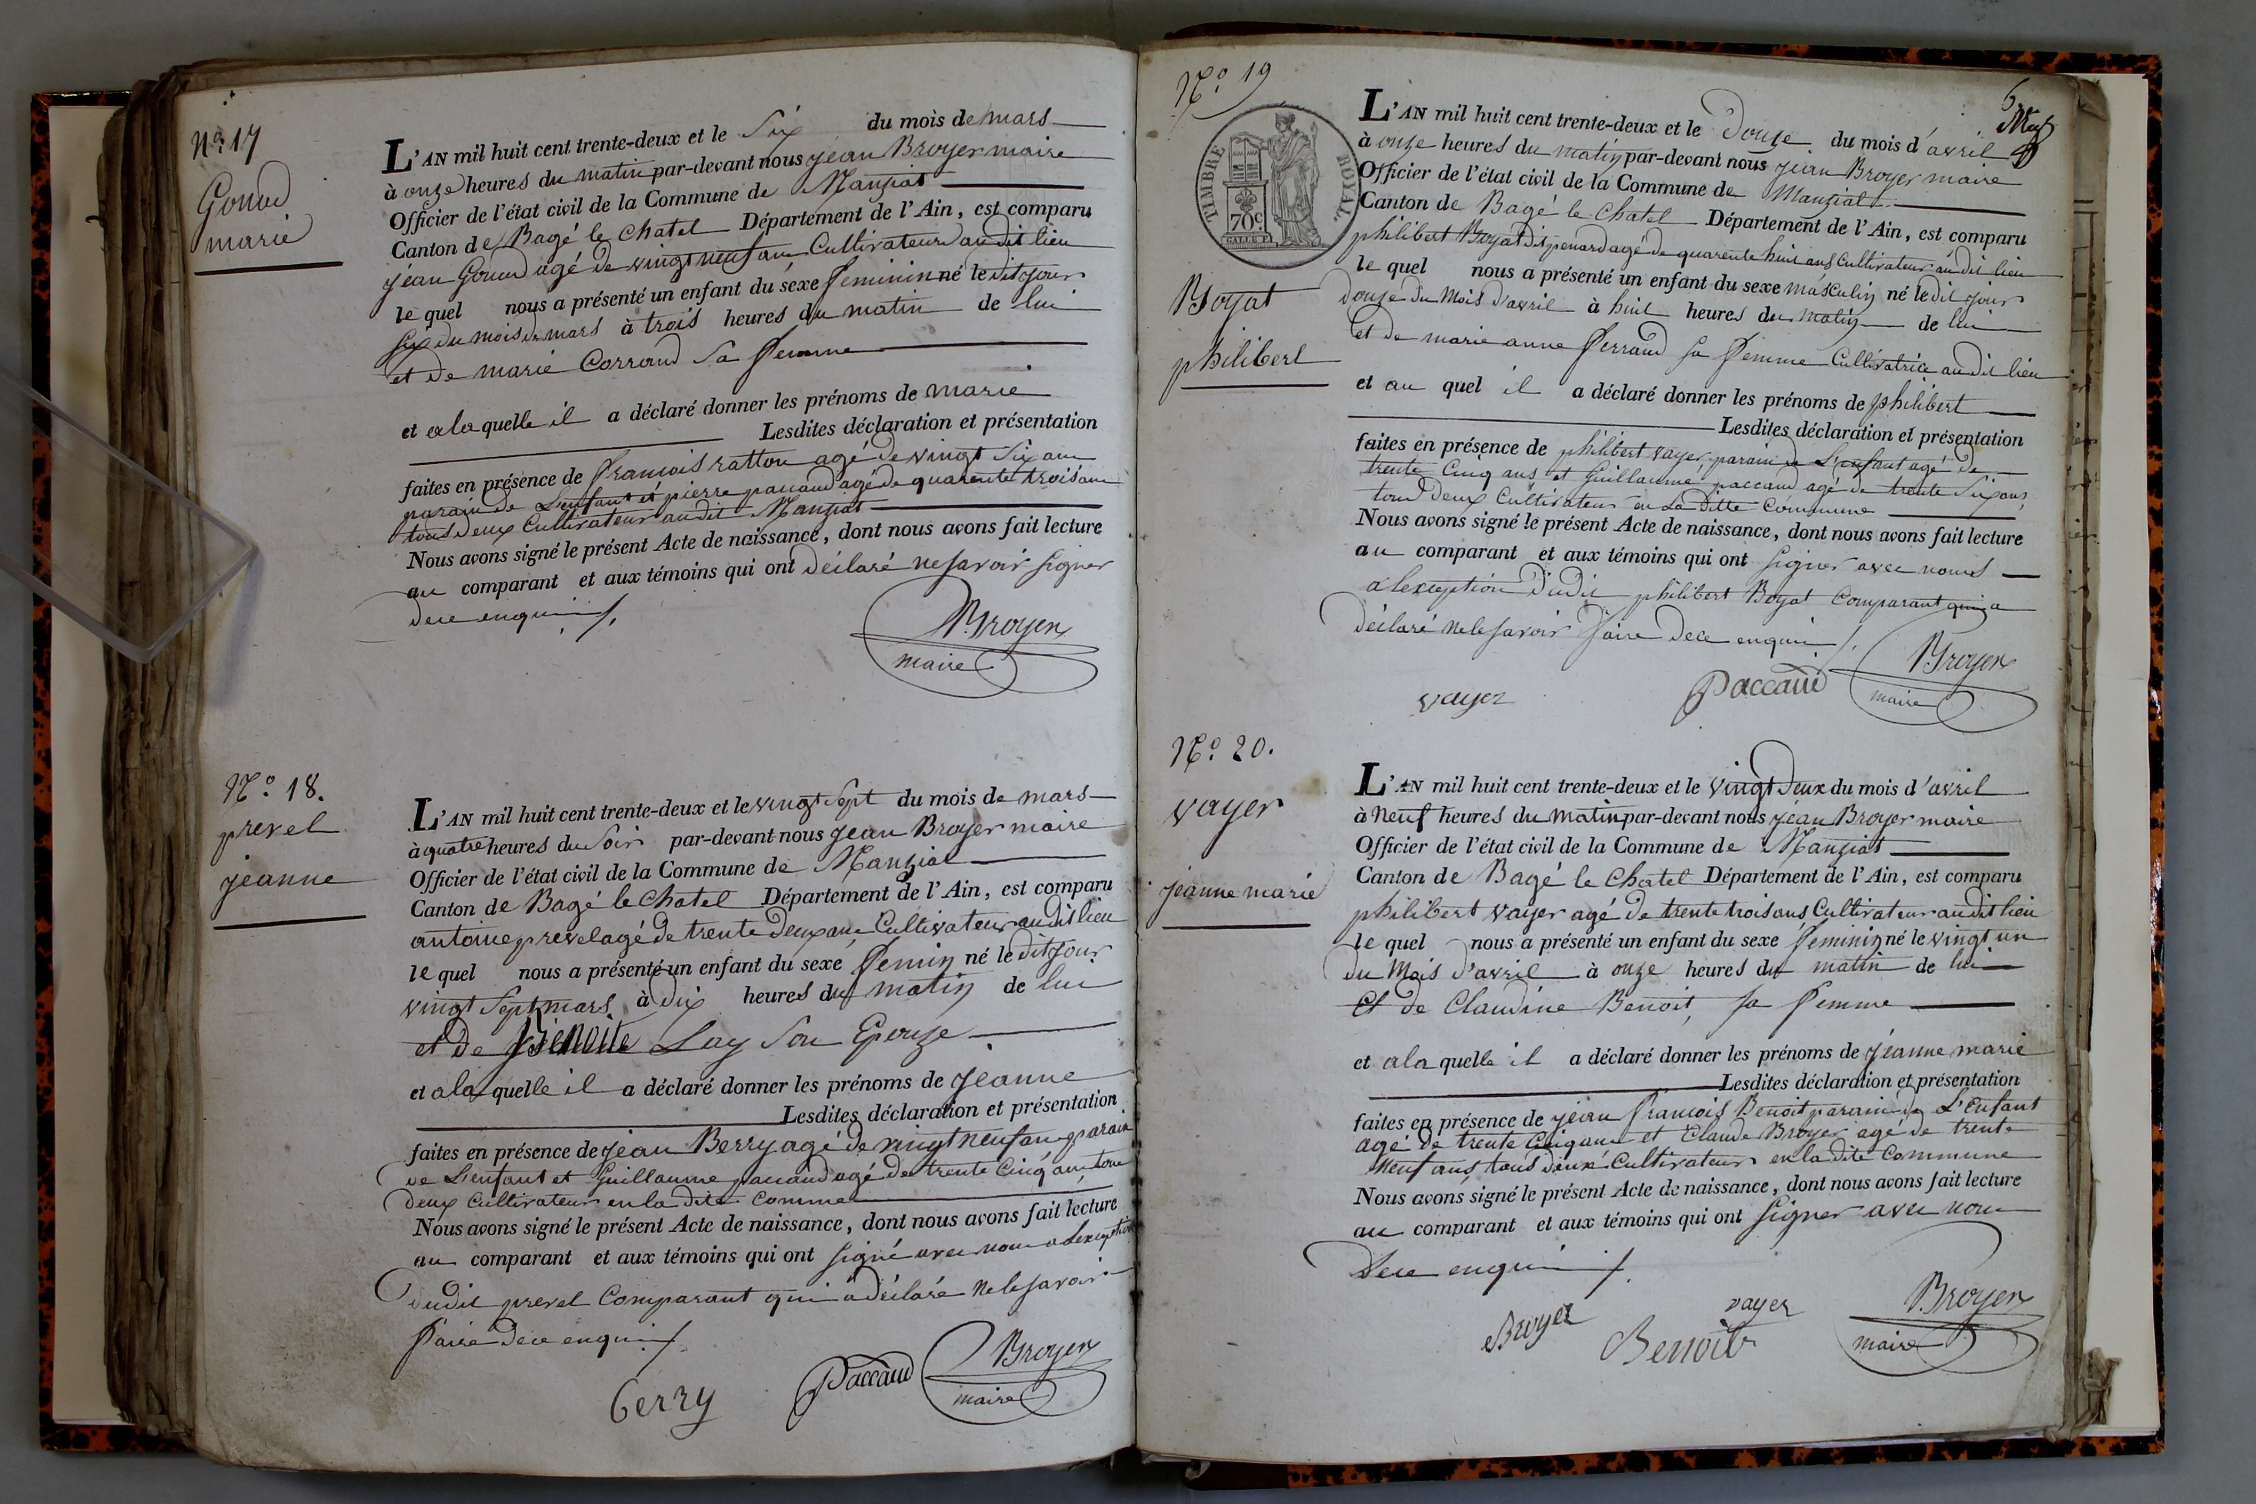 No. 17
Gonod
marie
L'AN mil huit cent trente-deux et le Six du mois de mars
à onze heures du matin par-devant nous jean Broyer maire
Officier de l'état civil de la Commune de Manziat
Canton de Bagé le Chatel Département de l'Ain, est comparu
jean Gonod agé de vingt neuf ans Cultivateur audit lieu
le quel nous a présenté un enfant du sexe feminin né le dit jour
six du mois de mars à trois heures du matin de lui
et de marie Corrand sa femme
et a la quelle il a déclaré donner les prénoms de marie
Lesdites déclaration et présentation
faites en présence de francois ratton agé de vingt Six ans
parain de L'enfant et pierre paccaud agé de quarente trois ans
tous deux Cultivateur audit Manziat
Nous avons signé le présent Acte de naissance, dont nous avons fait lecture
au comparant et aux témoins qui ont déclaré ne savoir signer
de ce enquis
Broyer
maire
No. 18.
prevel
jeanne
L'AN mil huit cent trente-deux et le vingt Sept du mois de mars
à quatre heures du Soir par-devant nous jean Broyer maire
Officier de l'état civil de la Commune de Manziat
Canton de Bagé le Chatel Département de l'Ain, est comparu
antoine prevel agé de trente deux ans Cultivateur audit lieu
le quel nous a présenté un enfant du sexe femin né le dit jour
vingt Sept mars à dix heures du matin de lui
et de Benoite Lay Son Epouze
et a la quelle il a déclaré donner les prénoms de jeanne
Lesdites déclaration et présentation
faites en présence de jean Berry agé de vingt neuf ans parain
de L'enfant et Guillaume paccaud agé de trente Cinq ans tous
deux cultivateur en la dite comme
Nous avons signé le présent Acte de naissance, dont nous avons fait lecture
au comparant et aux témoins qui ont signé avec nous a Lexception
dudit prevel Comparant qui a déclaré ne le savoir
faire de ce enquis
berry
Paccaud
Broyer
maire
No. 19
TIMBRE ROYAL
70c.
Boyat
philibert
L'AN mil huit cent trente-deux et le Douze du mois d'avril
à onze heures du matin par-devant nous jean Broyer maire
Officier de l'état civil de la Commune de Manziat
Canton de Bagé le Chatel Département de l'Ain, est comparu
philibert Boyat dit penard agé de quarente huit ans Cultivateur audit lieu
le quel nous a présenté un enfant du sexe masculin né le dit jour
douze du Mois d'avril à huit heures du matin de lui
et de marie anne ferrand sa femme Cultivatrice audit lieu
et au quel il a déclaré donner les prénoms de philibert
Lesdites déclaration et présentation
faites en présence de philibert vayer, parain de L'enfant agé de
trente Cinq ans et Guillaume paccaud agé de trente Six ans
tous deux Cultivateur en La ditte Commune
Nous avons signé le présent Acte de naissance, dont nous avons fait lecture
au comparant et aux témoins qui ont signer avec nous
a lexception dudit philibert Boyat Comparant qui a
déclaré ne le savoir faire de ce enquis
vayer
Paccaud
Broyer
maire
No. 20.
vayer
jeanne marie
L'AN mil huit cent trente-deux et le vingt Deux du mois d'avril
à Neuf heures du matin par-devant nous jean Broyer maire
Officier de l'état civil de la Commune de Manziat
Canton de Bagé le Chatel Département de l'Ain, est comparu
philibert vayer agé de trente trois ans Cultivateur audit lieu
le quel nous a présenté un enfant du sexe feminin né le vingt un
du Mois d'avril à onze heures du matin de lui
et de Claudine Benoit, sa femme
et a la quelle il a déclaré donner les prénoms de jeanne marie
Lesdites déclaration et présentation
faites en présence de jean francois Benoit parain de L'Enfant
agé de trente Cinq ans et Claude Broyer agé de trente
Neuf ans, tous deux Cultivateur en la dite Commune
Nous avons signé le présent Acte de naissance, dont nous avons fait lecture
au comparant et aux témoins qui ont signer avec nous
de ce enquis
Broyer
vayer
Benoit
Broyer
maire